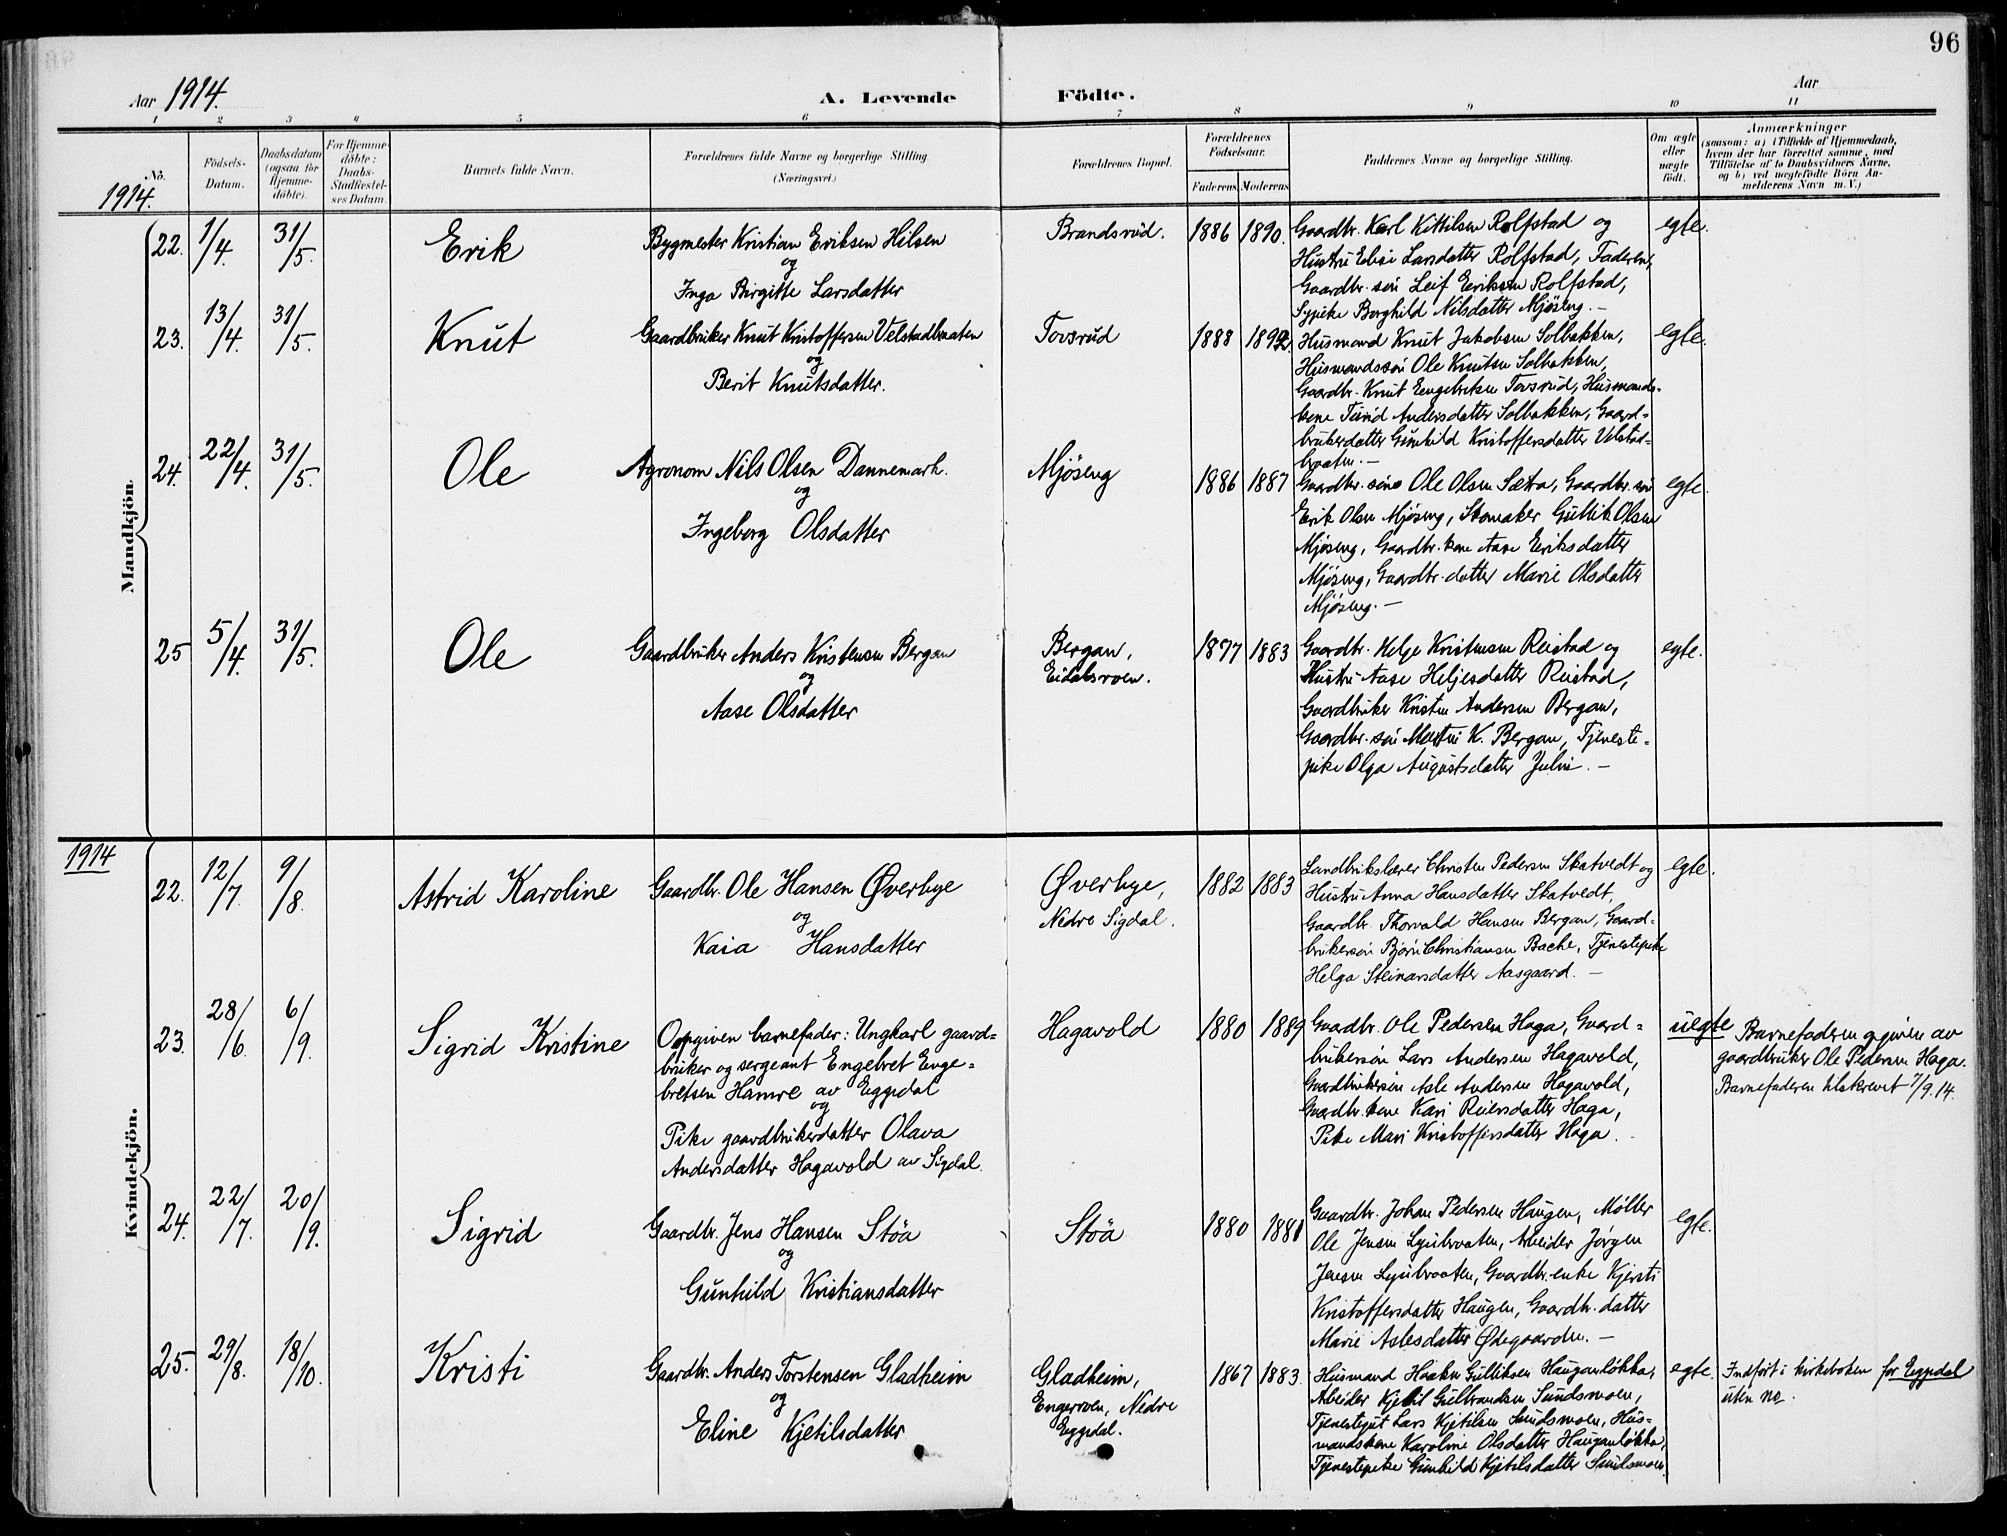 96
Aar 1914.
A. Levende Födte.
Aar
1 2 3 4 5 6 7 8 9 10 11
No.
Födsels-Datum.
Daabsdatum (ogsaa for Hjemme-döbte).
For Hjemme-döbte: Daabs-Stadfæstel-ses Datum.
Barnets fulde Navn.
Forældrenes fulde Navne og borgerlige Stilling.
(Næringsvei.)
Forældrenes Bopæl.
Forældrenes Födselsaar.
Faderens Moderens
Faddernes Navne og borgerlige Stilling.
Om ægte eller uægte födt.
Anmærkninger
(saasom: a) i Tilfælde af Hjemmedaab,
hvem der har forrettet samme, med
Tilföielse af to Daabsvidners Navne,
og b) ved uægtefödte Börn An-
melderens Navn m. V.)
1914.
Mandkjön.
22. 1/4. 31/5. Erik
Bygmester Kristian Eriksen Hilsen
og
Inga Birgitte Larsdatter
Brandsrud. 1886 1890.
Gaardbr. Karl Kittilsen Rolfstad og
Hustru Elise Larsdatter Rolfstad, Faderen,
Gaardbr. søn Leif Eriksen Rolfstad,
Sypike Borghild Nilsdatter Mjøseng. —
egte.
23. 13/4. 31/5. Knut
Gaardbruker Knut Kristoffersen Velstadbraaten
og
Berit Knutsdatter.
Tovsrud 1888 1892.
Husmand Knut Jakobsen Solbakken,
Husmandssøn Ole Knutsen Solbakken,
Gaardbr. Knut Engebretsen Tovsrud, Husmands-
kone Turid Andersdatter Solbakken, Gaard-
brukerdatter Gunhild Kristoffersdatter Velstad-
braaten. —
egte.
24. 22/4. 31/5. Ole
Agronom Nils Olsen Dannemark.
og
Ingeborg Olsdatter
Mjöseng 1886 1887
Gaardbr. søn Ole Olsen Sætra, Gaardbr. søn
Erik Olsen Mjöseng, Skomaker Gullik Olsen
Mjöseng, Gaardbr. kone Aase Eriksdatter
Mjöseng, Gaardbr. datter Marie Olsdatter
Mjöseng. —
egte.
25 5/4. 31/5. Ole
Gaardbruker Anders Kristensen Bergan
og
Aase Olsdatter
Bergan,
Eidalsroen.
1877 1883
Gaardbr. Helge Kristensen Reistad og
Hustru Aase Heljesdatter Reistad,
Gaardbruker Kristen Andersen Bergan,
Gaardbr. søn K. Bergan, Tjeneste-
pike Olga Augustsdatter Julin. —
egte.
1914
Kvindekjön.
22. 12/7. 9/8. Astrid Karoline
Gaardbr. Ole Hansen Øverbye
og
Kaia Hansdatter
Øverbye,
Nedre Sigdal.
1882 1883
Landbrukslærer Christen Pedersen Skatvedt og
Hustru Anna Hansdatter Skatvedt,
Gaardbr. Thorvald Hansen Bergan, Gaard-
brukersøn Bjørn Christiansen Bache, Tjenestepike
Helga Steinarsdatter Aasgaard. —
egte.
23. 28/6. 6/9. Sigrid Kristine
Opgiven barnefader: Ungkarl gaard-
bruker og sergeant Engebret Enge-
bretsen Hamre av Eggedal
og
Pike gaardbrukerdatter Olava
Andersdatter Hagavold av Sigdal.
Hagavold 1880 1889
Gaardbr. Ole Pedersen Haga, Gaard-
brukersøn Lars Andersen Hagavold,
Gaardbrukersøn Asle Andersen Hagavold,
Gaardbr. kone Kari Reiersdatter Haga,
Pike Mari Kristoffersdatter Haga. —
uegte
Barnefaderen opgiven av
gaardbruker Ole Pedersen Haga.
Barnefaderen tilskrevet 7/9.14.
24. 22/7. 20/9. Sigrid
Gaardbr. Jens Hansen Støa
og
Gunhild Kristiansdatter
Støa 1880 1881
Gaardbr. Johan Pedersen Haugen, Møller
Ole Jensen Arbeider Jørgen
Jensen Gaardbr. enke Kjersti
Kristoffersdatter Haugen, Gaardbr. datter
Marie Aslesdatter Ødegaarden. —
egte.
25. 29/8. 18/10. Kristi
Gaardbr. Anders Torstensen Gladheim
og
Eline Kjetilsdatter
Gladheim,
Engerroen, Nedre
Eggedal.
1867 1883.
Husmand Haakon Gulliksen Hauganløkka,
Arbeider Kjetil Gulbrandsen Sundsmoen,
Tjenestegut Lars Kjetilsen Sundsmoen, Hus-
mandskone Karoline Olsdatter Hauganløkka,
Tjenestepike Gunhild Kjetilsdatter Sundsmoen.
egte.
Indført i kirkeboken for Eggedal
uten no.